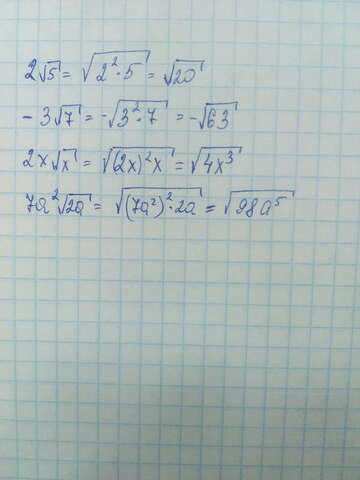 2√5 = √(2²·5) = √20
- 3√7 = -√(3²·7) = -√63
2x√x = √((2x)²x) = √(4x³)
7a²√(2a) = √((7a²)²·2a) = √(98a⁵)